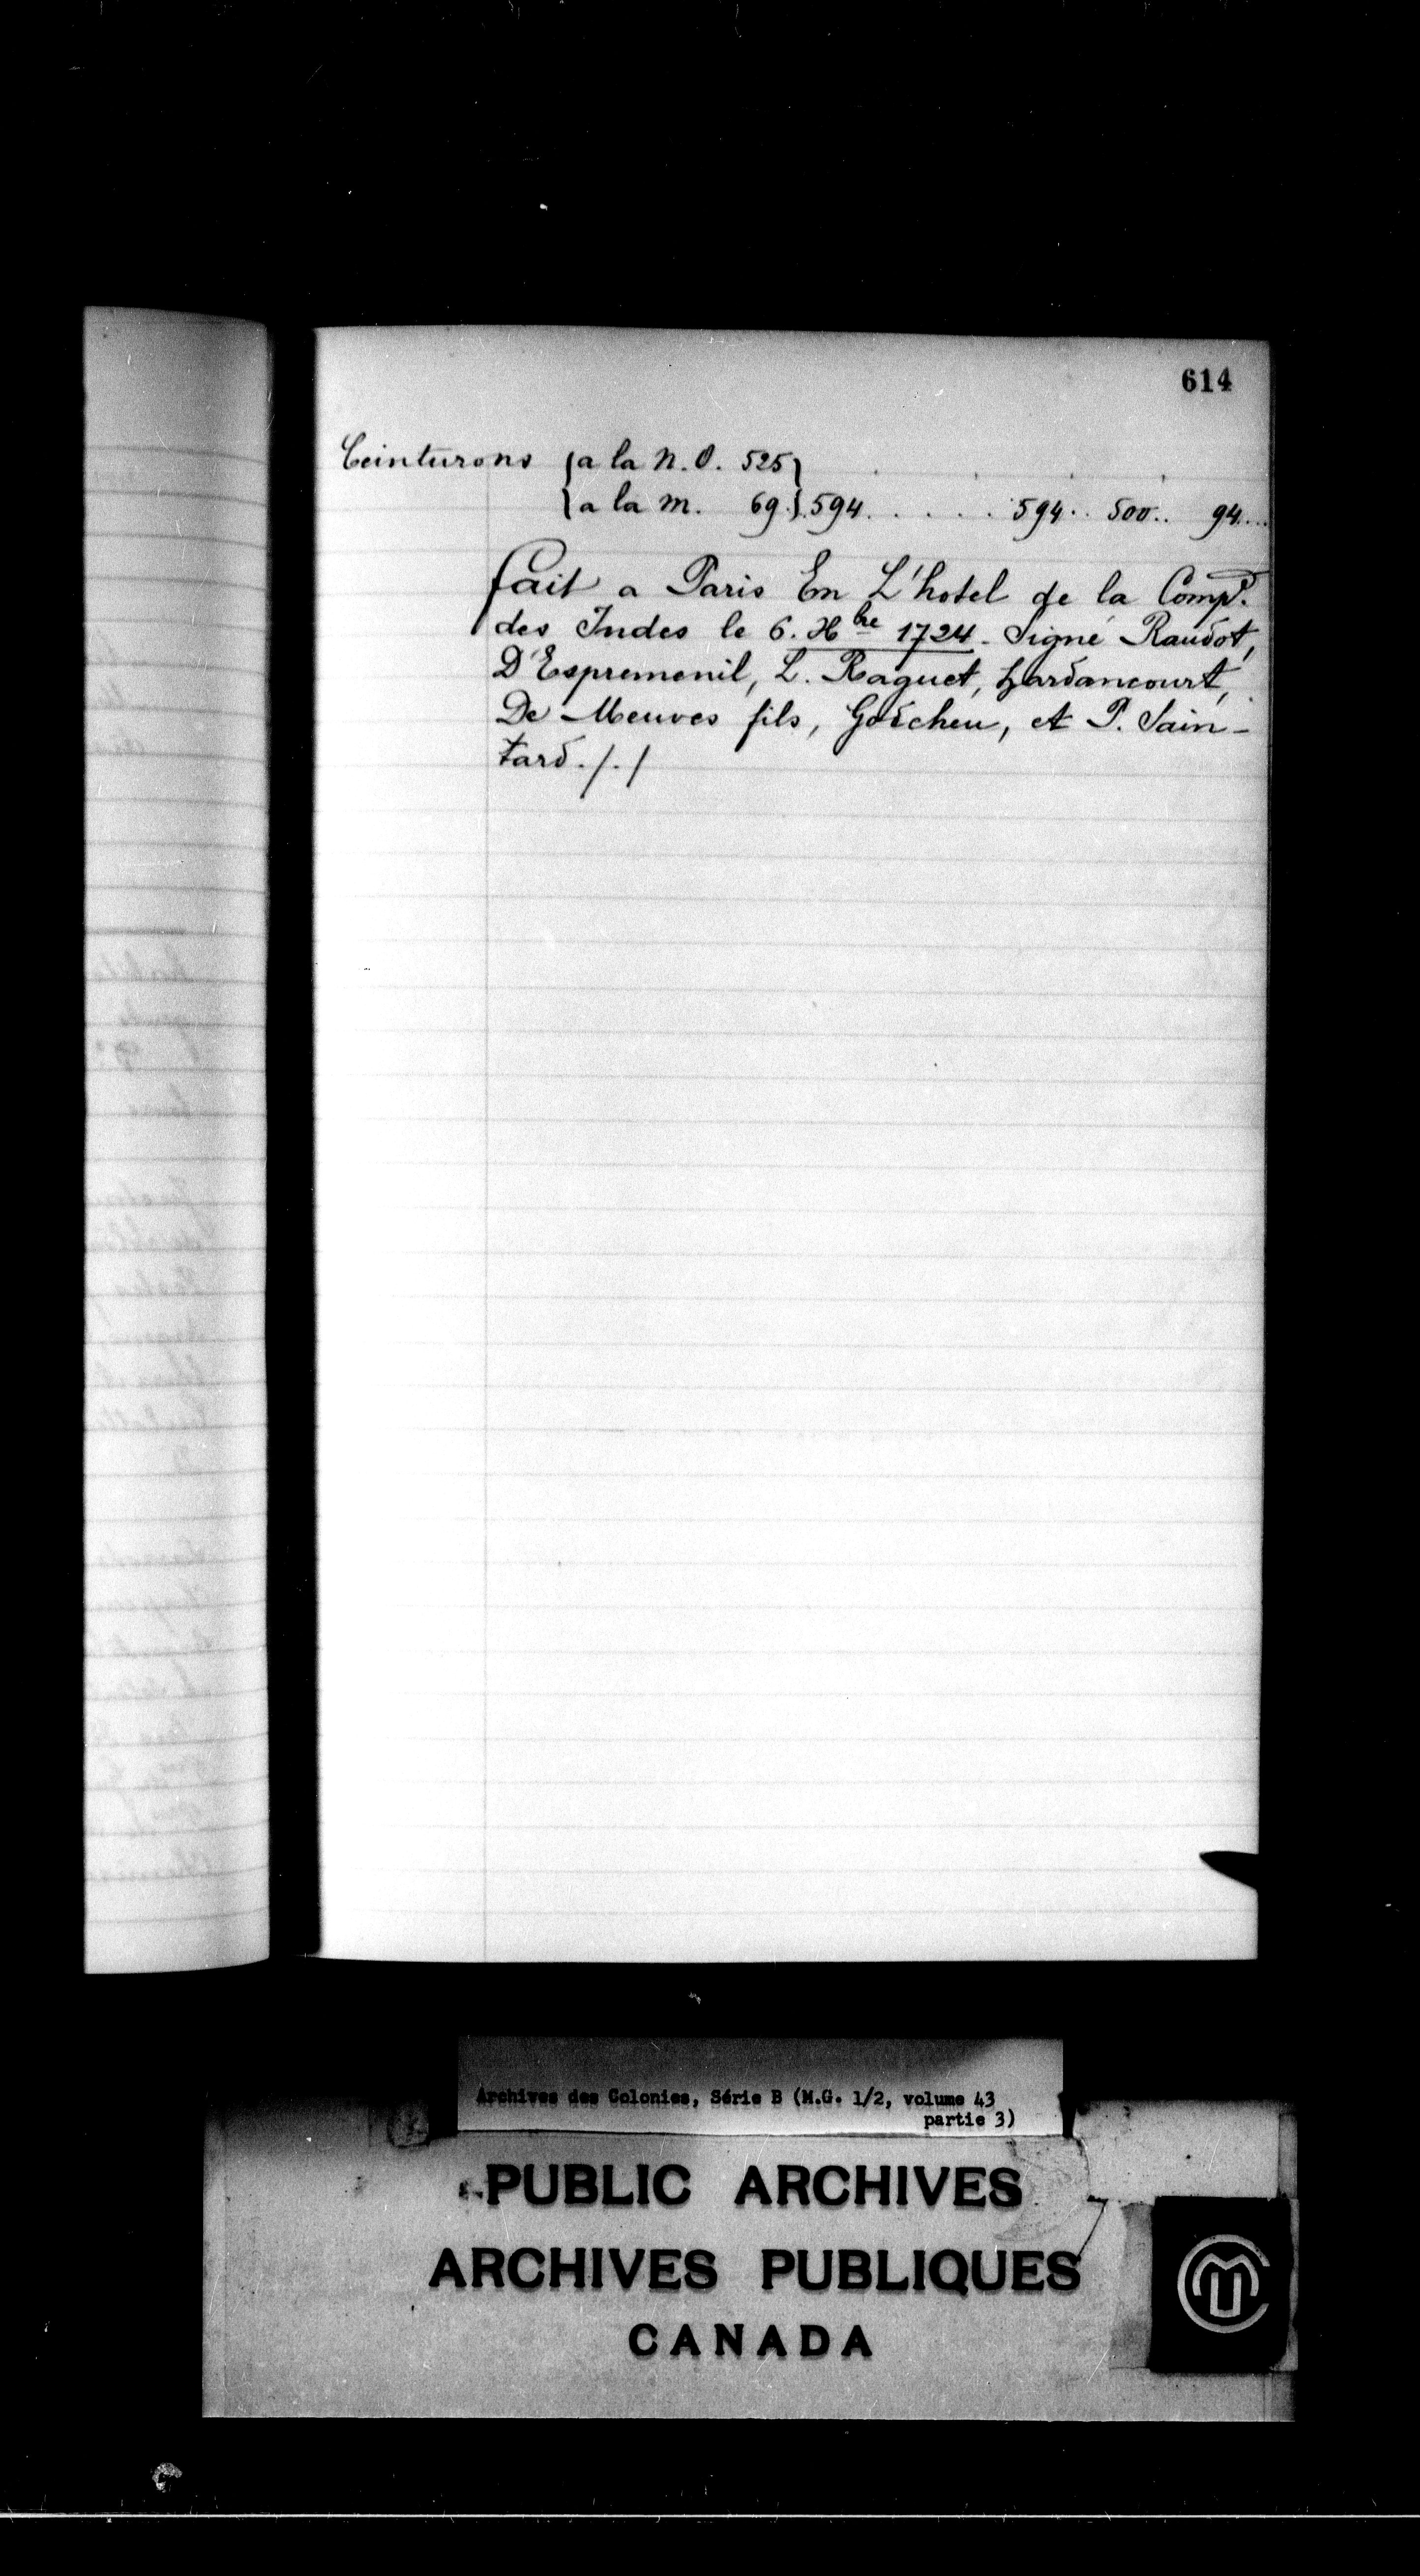 614
Ceinturons { a la N. O. 525 }
{ a la M. 69. } 594. . . . . . 594. . 500. . 94. . .
fait a Paris En L'hotel de la Comp.e
des Indes le 6. Xbre 1724. Signé Raudot,
D'Espremenil, L. Raguet, hardancourt,
De Meuves fils, Godcheu, et P. Sain-
tard ./. /
Archives des Colonies, Série B (M.G. 1/2, volume 43
partie 3)
PUBLIC ARCHIVES
ARCHIVES PUBLIQUES
CANADA